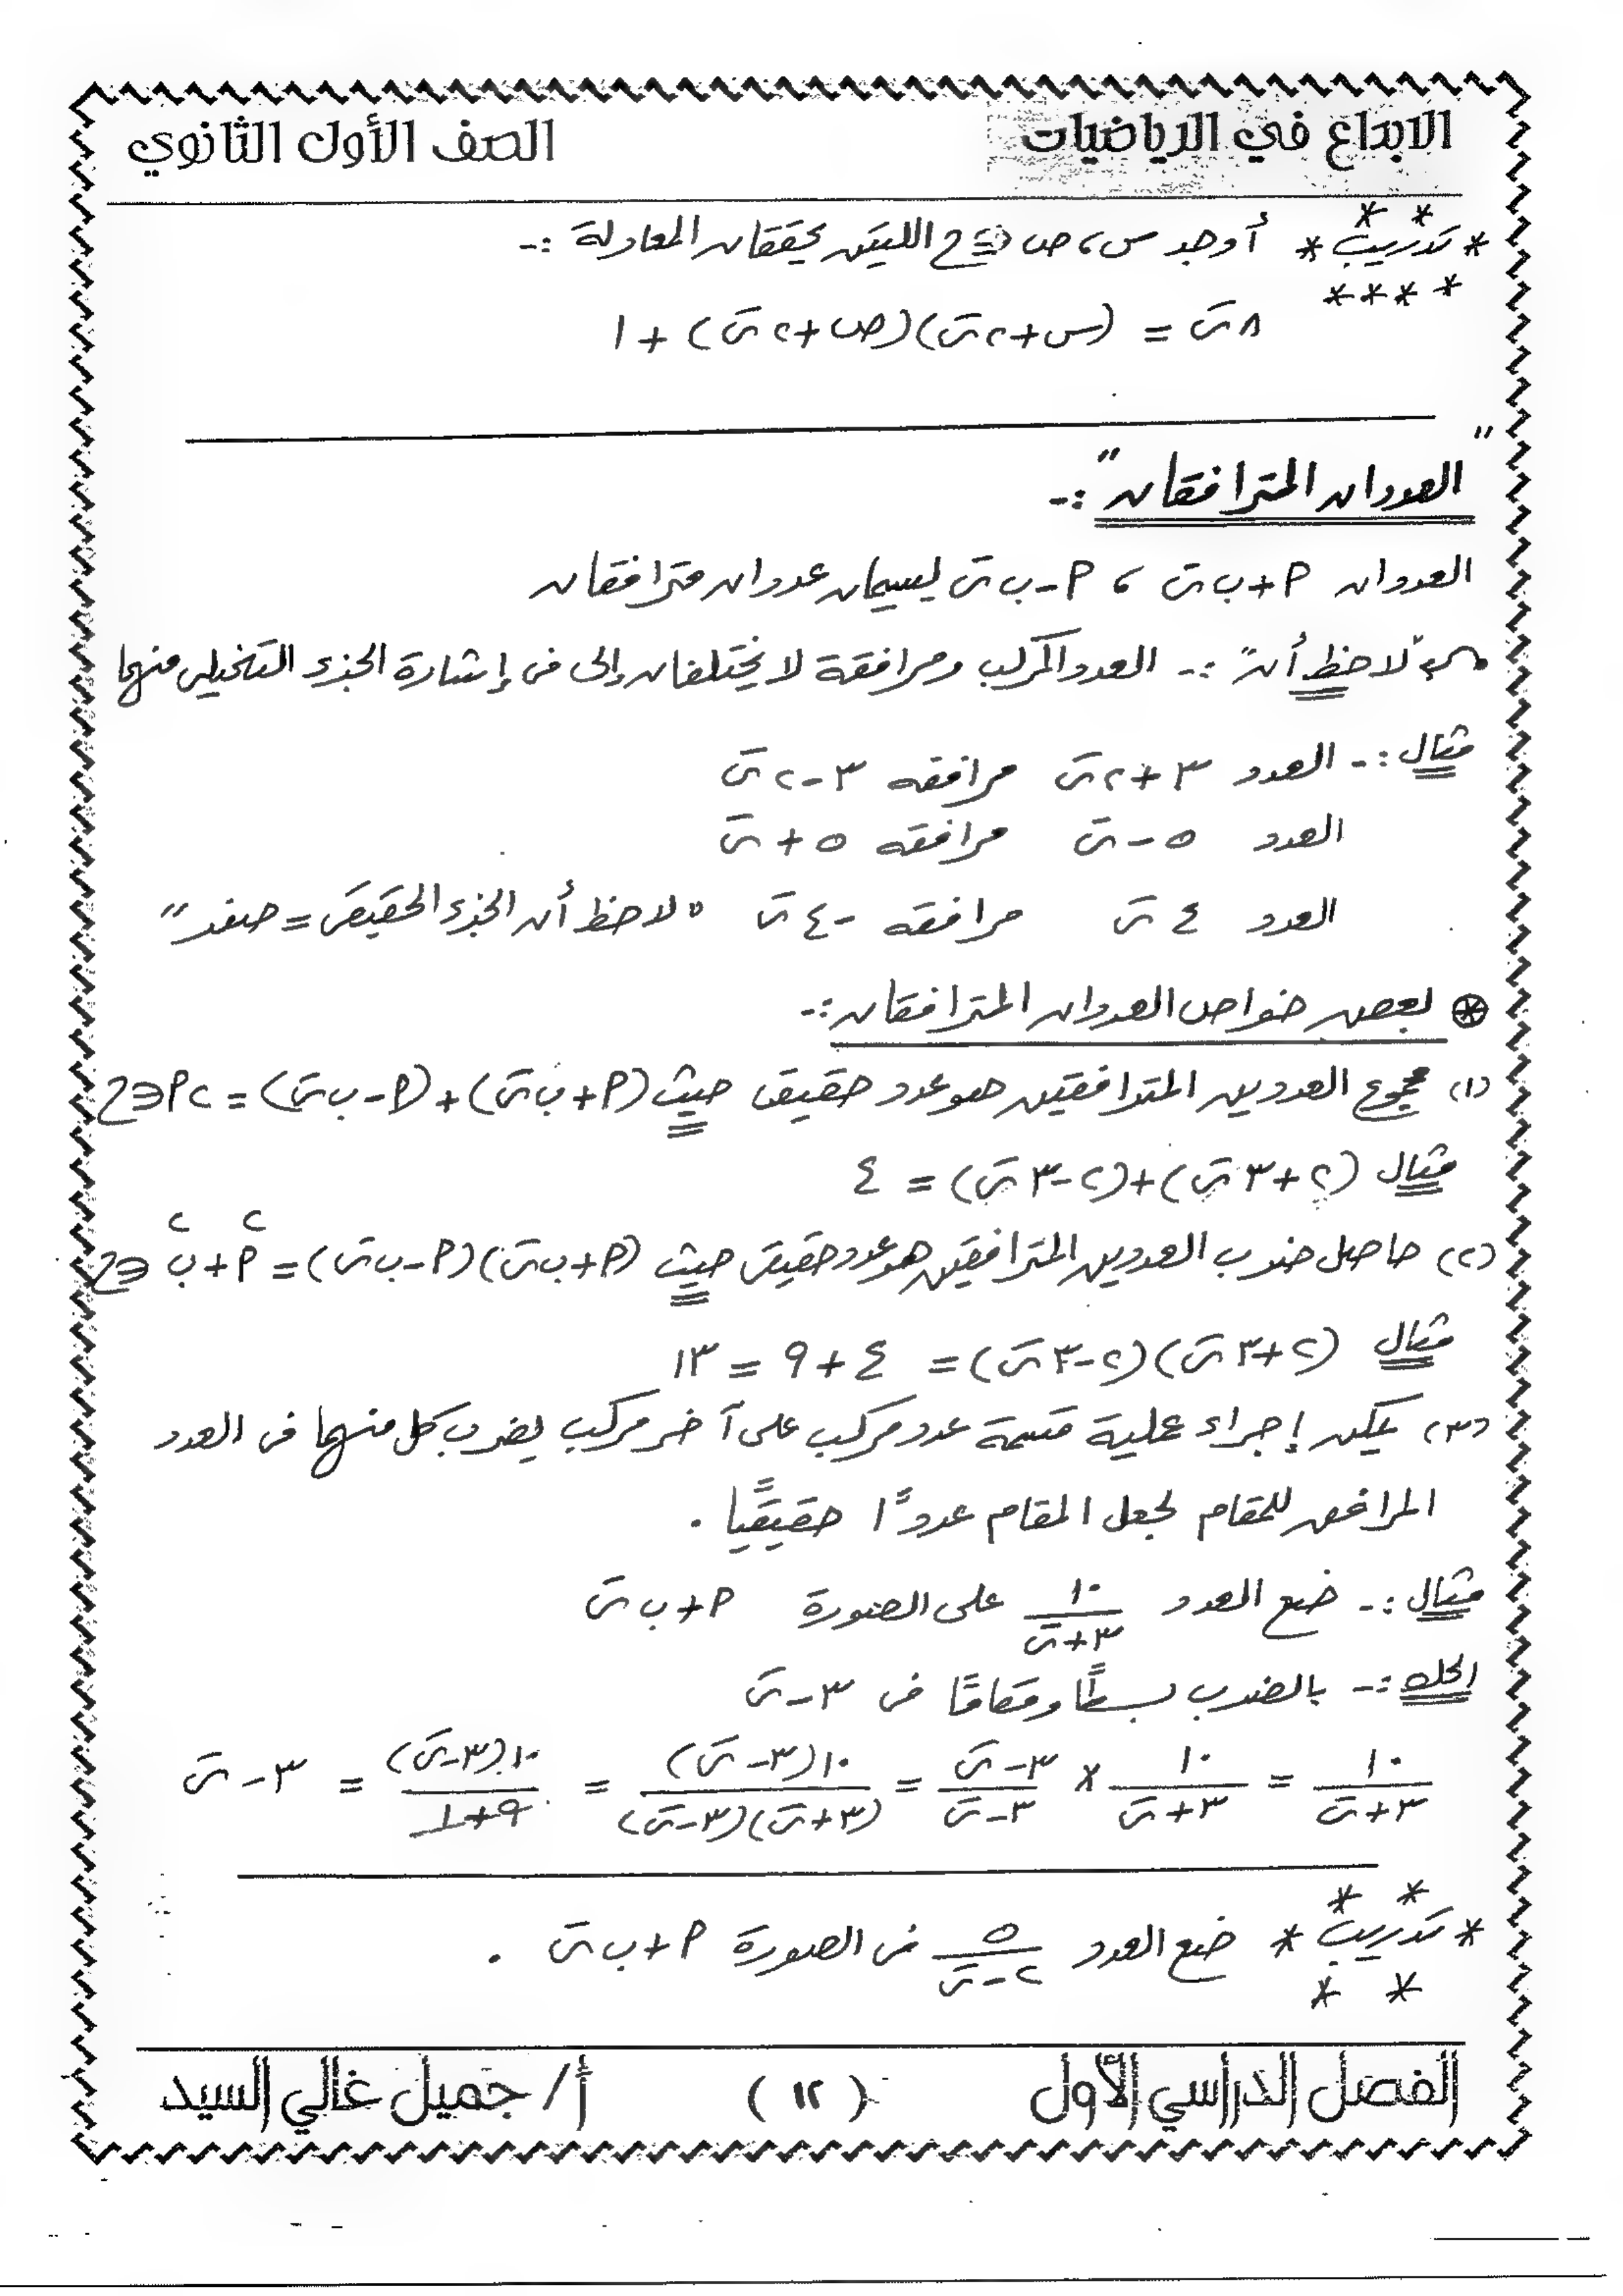 الابداع في الرياضيات
الصف الأول الثانوي
* تدريب * أوجد س ، ص ∈ ح اللتين يحققان المعادلة :-
(س + ٢ت)(ص + ٢ت) + ١ = ٨ت
"العددان المترافقان" :-
العددان أ + ب ت ، أ - ب ت يسميان عددان مترافقان
لاحظ أن :- العدد المركب ومرافقة لا يختلفان إلى فى إشارة الجزء التخيلى منهما
مثال :- العدد ٣ + ٢ت مرافقه ٣ - ٢ت
العدد ٥ - ت مرافقه ٥ + ت
العدد ٤ت مرافقه -٤ت "لاحظ أن الجزء الحقيقى = صفر"
بعض خواص العددان المترافقان :-
(١) مجموع العددين المترافقين هو عدد حقيقى حيث (أ + ب ت) + (أ - ب ت) = ٢أ ∈ ح
مثال (٢ + ٣ت) + (٢ - ٣ت) = ٤
(٢) حاصل ضرب العددين المترافقين هو عدد حقيقى حيث (أ + ب ت)(أ - ب ت) = أ² + ب² ∈ ح
مثال (٢ + ٣ت)(٢ - ٣ت) = ٤ + ٩ = ١٣
(٣) يمكن إجراء عملية قسمة عدد مركب على آخر مركب بضرب كل منهما فى العدد
المرافق للمقام لجعل المقام عددًا حقيقيًا .
مثال :- ضع العدد ١٠ / (٣ + ت) على الصورة أ + ب ت
الحل :- بالضرب بسطًا ومقامًا فى ٣ - ت
١٠ / (٣ + ت) = ١٠ / (٣ + ت) × (٣ - ت) / (٣ - ت) = ١٠(٣ - ت) / (٣ + ت)(٣ - ت) = ١٠(٣ - ت) / (٩ + ١) = ٣ - ت
* تدريب * ضع العدد ٥ / (٢ - ت) فى الصورة أ + ب ت .
الفصل الدراسي الأول
( ١٢ )
أ / جميل غالي السيد